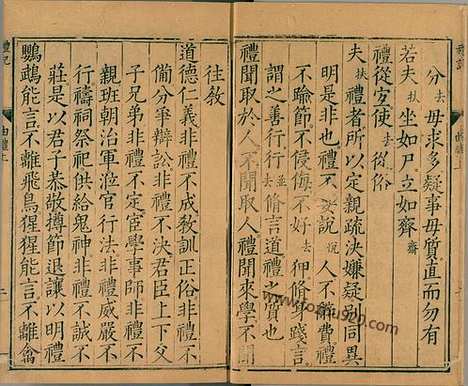 分去 毋求多疑事毋質直而勿有
若夫扶 坐如尸立如齊齋
禮從宜使去從俗
夫扶禮者所以定親疏決嫌疑別同異
明是非也禮不妄說 人不辭費禮
不踰節不侵侮不好去 狎脩身踐言
謂之善行行去 脩言道禮之質也
禮聞取於人不聞取人禮聞來學不聞
往敎
道德仁義非禮不成敎訓正俗非禮不
備分爭辯訟非禮不決君臣上下父
子兄弟非禮不定宦學事師非禮不
親班朝治軍涖官行法非禮威嚴不
行禱祠祭祀供給鬼神非禮不誠不
莊是以君子恭敬撙節退讓以明禮
鸚鵡能言不離飛鳥猩猩能言不離禽
禮記
曲禮上